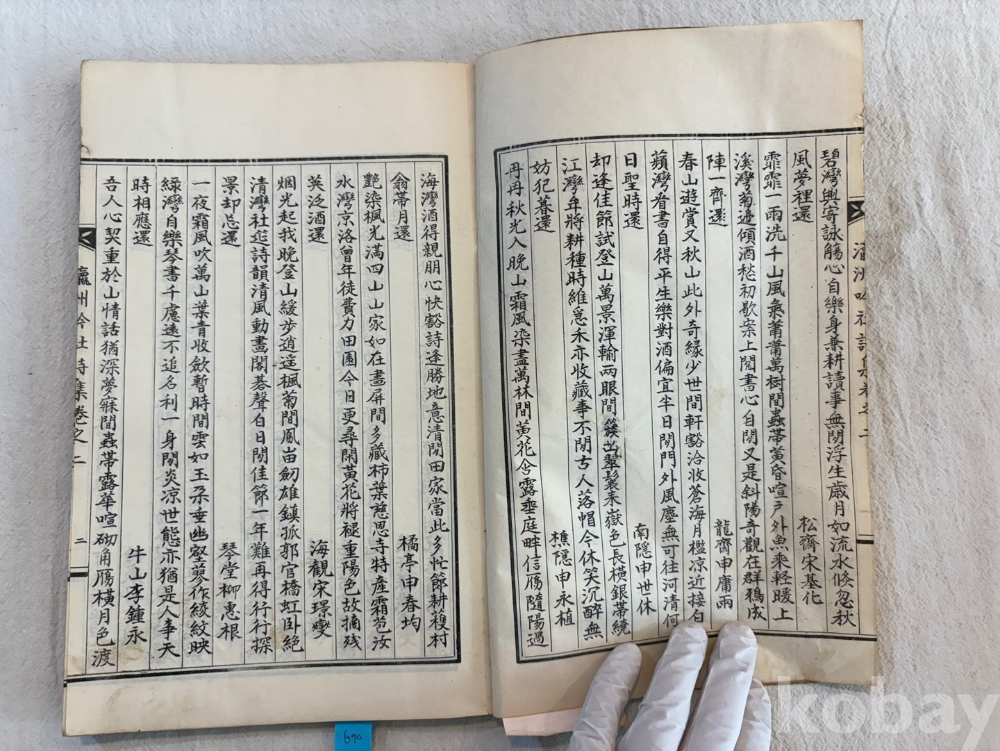 碧灣興寄詠觴心自樂身兼耕讀事無閒浮生歲月如流水倏忽秋
風夢裡還 松齋宋基化
霏霏一雨洗千山風氣蕭蕭萬樹間蟲帶黃昏喧戶外魚乘輕暖上
溪灣菊邊傾酒愁初歇案上閱書心自閒又是斜陽奇觀在群鴉成
陣一齊還 龍齋申庸雨
春山遊賞又秋山此外奇緣少世間軒豁洽收蒼海月檻凉近接白
蘋灣看書自得平生樂對酒偏宜半日閒門外風塵無可往河清何
日聖時還 南隱申世休
却逢佳節試登山萬景渾輸兩眼間簇出翠鬟來嶽色長橫銀帶繞
江灣年將耕種時維怠禾亦收藏事不閒古人落帽今休笑沉醉無
妨犯暮還 樵隱申永植
冉冉秋光入晚山霜風染盡萬林間黃花含露垂庭畔信鴈隨陽過
海灣酒得親朋心快豁詩逢勝地意清閒田家當此多忙節耕穫村
翁帶月還 橘亭申春均
艷染楓光滿四山山家如在畫屏間多藏柿葉慈恩寺特產霜苞汝
水灣京洛曾年徒費力田園今日更尋閒黃花將褪重陽色故摘殘
英泛酒還 海觀宋璟燮
烟光起我晚登山緩步逍遥楓菊間鳳峀劒雄鎮孤郭官橋虹卧絕
清灣社筵詩韻清風動畫閣碁聲白日閒佳節一年難再得行行探
景却忘還 琴堂柳惠根
一夜霜風吹萬山葉青收歛暫時間雲如玉朶垂幽壑蓼作綾紋映
綠灣自樂琴書千慮遠不追名利一身閒炎凉世態亦猶是人事天
時相應還 牛山李鍾永
吾人心契重於山情話猶深夢寐間蟲帶露華喧砌角鴈橫月色渡
瀛州吟社詩集卷之二 二
690
kobay